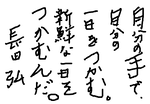 自分の手で、
自分の
一日をつかむ。
新鮮な一日を
つかむんだ。
長田弘